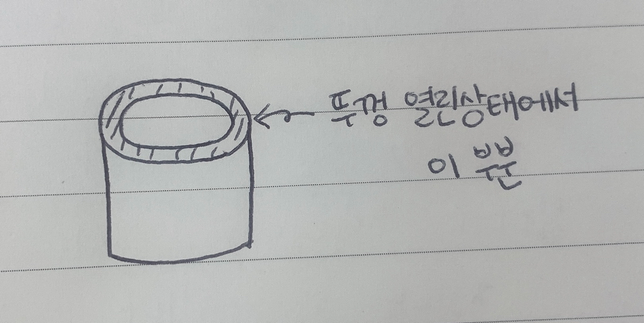 뚜껑 열린상태에서
이 부분